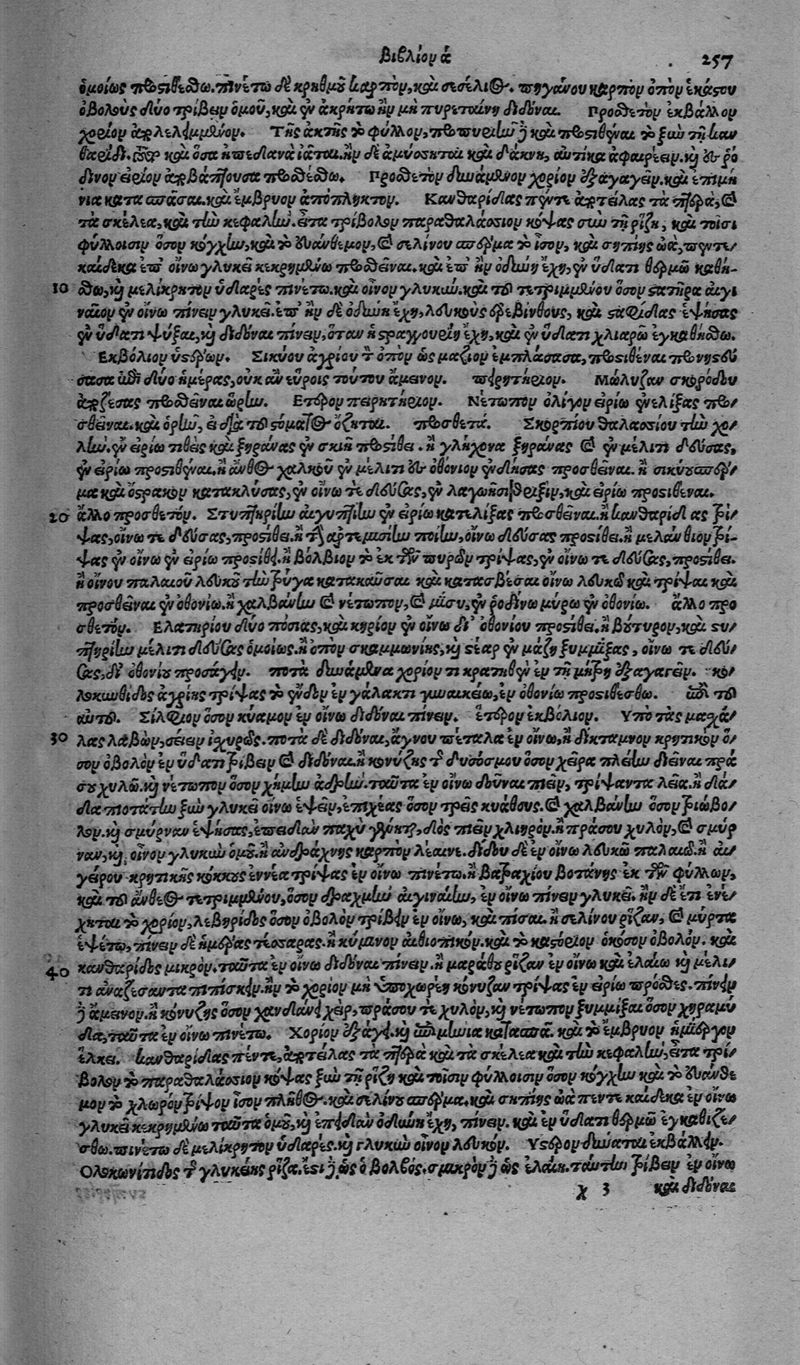 Βιβλίον ά 257
ὁμοίως προστιθέσθω. πινέτω δὲ κρηθμοῦ καρπὸν, καὶ σέσελι. πηγάνου καρπὸν ὀπὸν ἑκάστου
ὀβολοὺς δύο τρίβειν ὁμοῦ, καὶ ἐν ἀκρήτω ἢν μὴ πυρεταίνη διδόναι. Προσθετὸν ἐκβάλλον
χορίον
Τῆς ἀκτῆς τὸ φύλλον, καὶ τὸ ξὺν τῆ καν
θαρίδι. καὶ ὅσα ἰᾶται. ἢν δὲ ἀμύσσηται καὶ δάκνη, αὐτίκα ἀφαιρέειν. καὶ ἐν ῥο
δίνον εἰρίον προσθέσθω. Προσθετὸν δυνάμενον χορίον ἐξάγαγεν. καὶ ἐπιμή
νια κατασπάσαι. καὶ ἔμβρυον ἀπόπληκτον. Κανθαρίδας πέντε ἀποτείλας τὰ πτερὰ, καὶ
τὰ σκέλεα, καὶ τὴν κεφαλὴν. εἶτα τρίβολον παραθαλάσσιον κόψας σὺν τῆ ῥίζη, καὶ τοῖσι
φύλλοισιν ὅσον κόγχην, καὶ τὸ βυάνθεμον, καὶ σελίνου σπέρμα τὸ ἴσον, καὶ σηπίης ὠὰ, πεντε/
καίδεκα ἐπ' οἴνω γλυκεῖ κεκρημένω προσθεῖναι. καὶ ἐπ' ἢν ὀδύνη ἔχη, ἐν ὕδατι θερμῶ καθή-
10 σθω, καὶ μελίκρητον ὑδαρὲς πινέτω. καὶ οἶνον γλυκὺν. καὶ τοῦ τετριμμένου ὅσον στατῆρα αἰγι
ναῖον ἐν οἴνω πίνειν γλυκεῖ. ἐπ' ἢν δὲ ὀδύνη ἔχη, λευκοὺς ἐρεβίνθους, καὶ σταφίδας ἑψήσας
ἐν ὕδατι ψῦξαι, καὶ διδόναι πίνειν, ὅταν ἡ στραγγουρίη ἔχη, καὶ ἐν ὕδατι χλιαρῶ ἐγκαθήσθω.
Ἐκβόλιον ὑστέρων. Σικύου ἀγρίου τὸν ὀπὸν ὡς μαζίον ἐμπλάσασα, προστιθέναι προνηστεύ
σασα ἐπὶ δύο ἡμέρας, οὐκ ἂν εὕροις τούτου ἄμεινον. πειρητήριον. Μώλυζαν σκορόδου
ἀποζέσας προσθεῖναι. Ἕτερον πειρητήριον. Νέτωπον ὀλίγον εἰρίω ἐνελίξας προσ/
σθεῖναι. καὶ ὁρῆν, ἐ διὰ τοῦ στόματος ὄζηται. προσθετά. Σκορπίου θαλασσίου τὴν χο/
λὴν. ἐν εἰρίω τιθεὶς καὶ ξηράνας ἐν σκιῆ προστίθει. ἢ γλήχονα ξηράνας καὶ ἐν μέλιτι δεύσας,
ἐν εἰρίω προστιθέναι. ἢ ἄνθος χαλκοῦ ἐν μέλιτι ἐν ὀθόνιον ἐνδήσας προσθεῖναι. ἢ σικύου σπέρ/
μα καὶ ὄστρακον κατακλύσας, ἐν οἴνω τε δεύσας, ἐν λαγωῆσι θριξὶν, καὶ εἰρίω προστιθέναι.
20 ἄλλο προσθετόν. Στυπτηρίην αἰγυπτίην ἐν εἰρίω κατελίξας προσθεῖναι. ἢ κανθαρίδας τρί/
ψας, οἴνω τε δεύσας, προστίθει. ἢ τὴν ἀρτεμισίην ποίην, οἴνω δεύσας προστίθει. ἢ μελάνθιον τρί-
ψας ἐν οἴνω ἐν εἰρίω προστίθει. ἢ βόλβιον τὸ ἐκ τῶν πυρῶν τρίψας, ἐν οἴνω τε δεύσας, προστίθει.
ἢ οἴνου παλαιοῦ λευκοῦ τὴν τρύγα κατακαῦσαι καὶ κατασβέσαι οἴνω λευκῶ καὶ τρίψαι καὶ
προσθεῖναι ἐν ὀθονίω. ἢ χαλβάνην καὶ νέτωπον, καὶ μίσυ, ἐν ῥοδίνω μύρω ἐν ὀθονίω. ἄλλο προ
σθετόν. Ἐλατηρίου δύο πόσιας, καὶ κηρίον ἐν οἴνω δι' ὀθονίου προστίθει. ἢ βούτυρον, καὶ στυ/
πτηρίην μέλιτι δεύσας ὁμοίως. ἢ ὀπὸν σκαμμωνίης, καὶ στέαρ ἐν μάζη ξυμμίξας, οἴνω τε δεύ/
σας, δι' ὀθονίου προσάγειν. ποτὰ δυνάμενα χορίον τι κρατηθὲν ἐν τῆ μήτρη ἐξαγαγεῖν. κο/
λοκυνθίδος ἀγρίης τρίψας τὸ ἔνδον ἐν γάλακτι γυναικείω, ἐν ὀθονίω προστιθέσθω. ἐπὶ τοῦ
αὐτοῦ. Σίλφιον ὅσον κύαμον ἐν οἴνω διδόναι πίνειν. ἕτερον ἐκβόλιον. Ὑπὸ τὰς μασχά/
30 λας λαβὼν, σείειν ἰσχυρῶς. ποτὰ δὲ διδόναι, ἄγνου πέταλα ἐν οἴνω, ἢ δίκταμνον κρητικὸν ὅ/
σον ὀβολὸν ἐν ὕδατι τρίβειν καὶ διδόναι. ἢ κονύζης τῆς δυσόσμου ὅσον χεῖρα πλείην διεῖναι πρά
σου χυλῶ. καὶ νέτωπον ὅσον χήμην ἁδρὴν. ταῦτα ἐν οἴνω δοῦναι πιεῖν, τρίψαντα λεῖα. ἢ δᾷ/
δα πιοτάτην ξὺν γλυκεῖ οἴνω ἑψεῖν, ἐπιχέας ὅσον τρεῖς κυάθους. καὶ χαλβάνην ὅσον τριώβο/
λον. καὶ σμύρναν ἑψήσας, ἐπειδὰν παχὺ γένηται, δὸς πιεῖν χλιηρὸν. ἢ πράσου χυλὸν, καὶ σμύρ
ναν, καὶ οἶνον γλυκὺν ὁμοῦ. ἢ ἀνδράχνης καρπὸν λέαινε. δίδου δὲ ἐν οἴνω λευκῶ παλαιῶ. ἢ αἰ/
γείρου κρητικῆς κόκκους ἐννέα τρίψας ἐν οἴνω πινέτω. ἢ βατραχίου βοτάνης ἐκ τῶν φύλλων,
καὶ τοῦ ἄνθεος τετριμμένου, ὅσον δραχμὴν αἰγιναίην, ἐν οἴνω πίνειν γλυκεῖ. ἢν δὲ ἔτι ἐνέ/
χηται τὸ χορίον, λεβηρίδος ὅσον ὀβολὸν τρίβειν ἐν οἴνω, καὶ πῖσαι. ἢ σελίνου ῥίζαν, καὶ μύρτα
ἑψέτω, πίνειν δὲ ἡμέρας τέσσαρας. ἢ κύμινον αἰθιοπικὸν. καὶ τὸ καστόριον ὁκόσον ὀβολὸν. καὶ
40 κανθαρίδος μικρὸν. ταῦτα ἐν οἴνω διδόναι πίνειν. ἢ μαράθου ῥίζαν ἐν οἴνω καὶ ἐλαίω καὶ μέλι/
τι ἀναζέσαντα πιπίσκειν. ἢν τὸ χορίον μὴ ὑποχωρέη κόνυζαν τρίψας ἐν εἰρίω πρόσθες. πίνειν
δὲ ἄμεινον. ἢ κονύζης ὅσον χανδάνει χεὶρ, πράσου τε χυλὸν, καὶ νέτωπον ξυμμίξαι ὅσον χηραμύ
δα, ταῦτα ἐν οἴνω πινέτω. Χορίον ἐξάγει. καὶ ἐπιμήνια κατασπᾷ. καὶ τὸ ἔμβρυον ἡμίεργον
ἕλκει. κανθαρίδας πέντε, ἀποτείλας τὰ πτερὰ καὶ τὰ σκέλεα καὶ τὴν κεφαλὴν, εἶτα τρί/
βολον τὸ παραθαλάσσιον κόψας ξὺν τῆ ῥίζη καὶ τοῖσιν φύλλοισιν ὅσον κόγχην καὶ τὸ βυάνθε
μον τὸ χλωρὸν τρίψον ἴσον πλῆθος. καὶ σελίνου σπέρμα. καὶ σηπίης ὠὰ πεντεκαίδεκα ἐν οἴνω
γλυκεῖ κεκρημένω ταῦτα ὁμοῦ, καὶ ἐπειδὰν ὀδύνη ἔχη, πίνειν. καὶ ἐν ὕδατι θερμῶ ἐγκαθιζέ/
σθω. πινέτω δὲ μελίκρητον ὑδαρὲς. καὶ γλυκὺν οἶνον λευκόν. Ὕστερον δύναται ἐκβάλλειν.
Ὁλοκωνίτιδος τῆς γλυκείης ῥίζα. ἔστι δὲ ὡς ὁ βολβὸς, σμικρὸν δὲ ὡς ἐλαίη. ταύτην τρίβειν ἐν οἴνω
χ 3 καὶ διδόναι